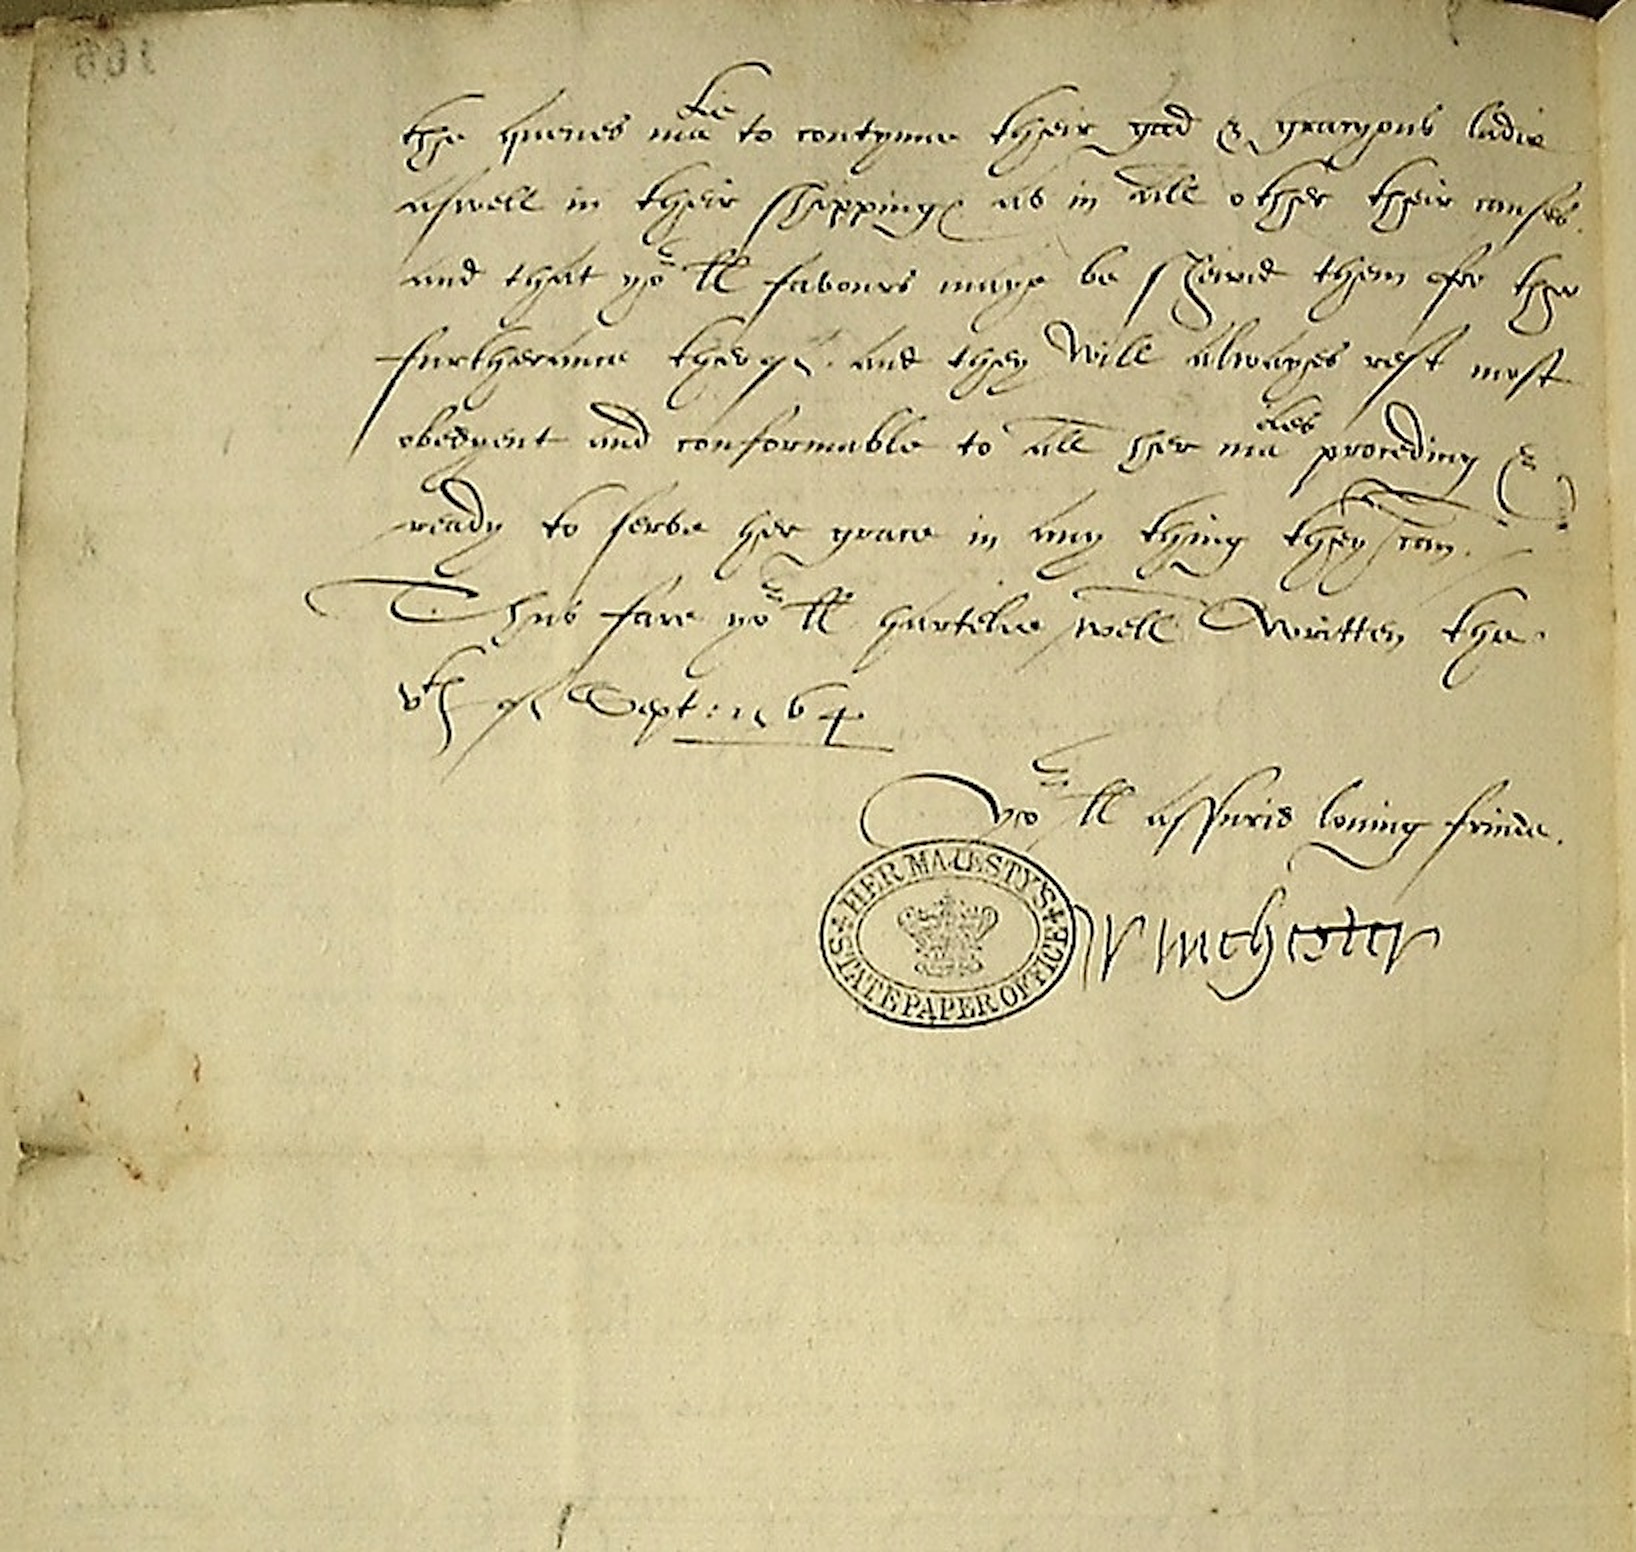 the quenes ma^tie to contynue their good & gracyous ladie
aswell in their shipping as in all other their causes.
and that yo^r ll favours maye be shewid them for the
furtheraunce therof. and they will alwayes rest most
obedyent and conformable to all her ma^ties proceding &
ready to serve her grace in any thing they can.
Thus fare yo^r ll hartelie well Written the
v^th of Sept: 1564
Yo^r ll assurid loving frinde.
Winchester
HER MAJESTY'S STATE PAPER OFFICE